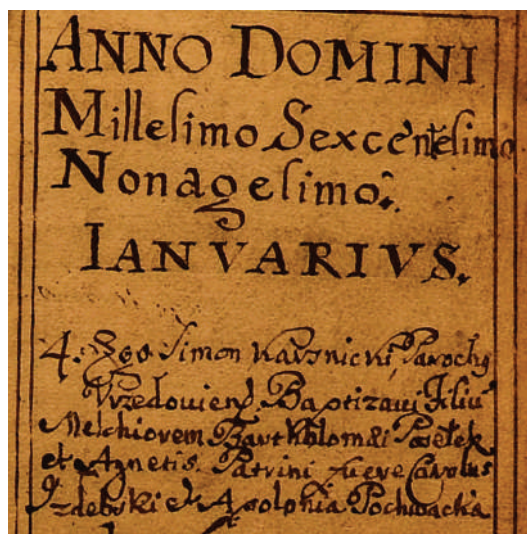 ANNO DOMINI
Millesimo Sexcentesimo
Nonagesimo.
IANVARIVS.
4. Ego Simon Karsnicki Paroch9
Vrzedovien. Baptizavi Filiu
Melchiorem Bartholomæi Pasetek
et Agnetis. Patrini fuere Carolus
Gzdebski et Apolphia Pochwacka